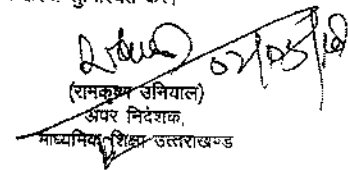 सुनिश्चित करें।
02/05/18
(रामकृष्ण उनियाल)
अपर निदेशक,
माध्यमिक शिक्षा उत्तराखण्ड